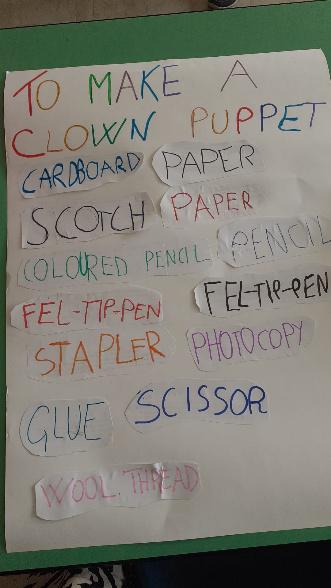 TO MAKE A
CLOWN PUPPET
CARDBOARD PAPER
SCOTCH PAPER
COLOURED PENCIL PENCIL
FEL-TIP-PEN FEL-TIP-PEN
STAPLER PHOTOCOPY
GLUE SCISSOR
WOOL THREAD